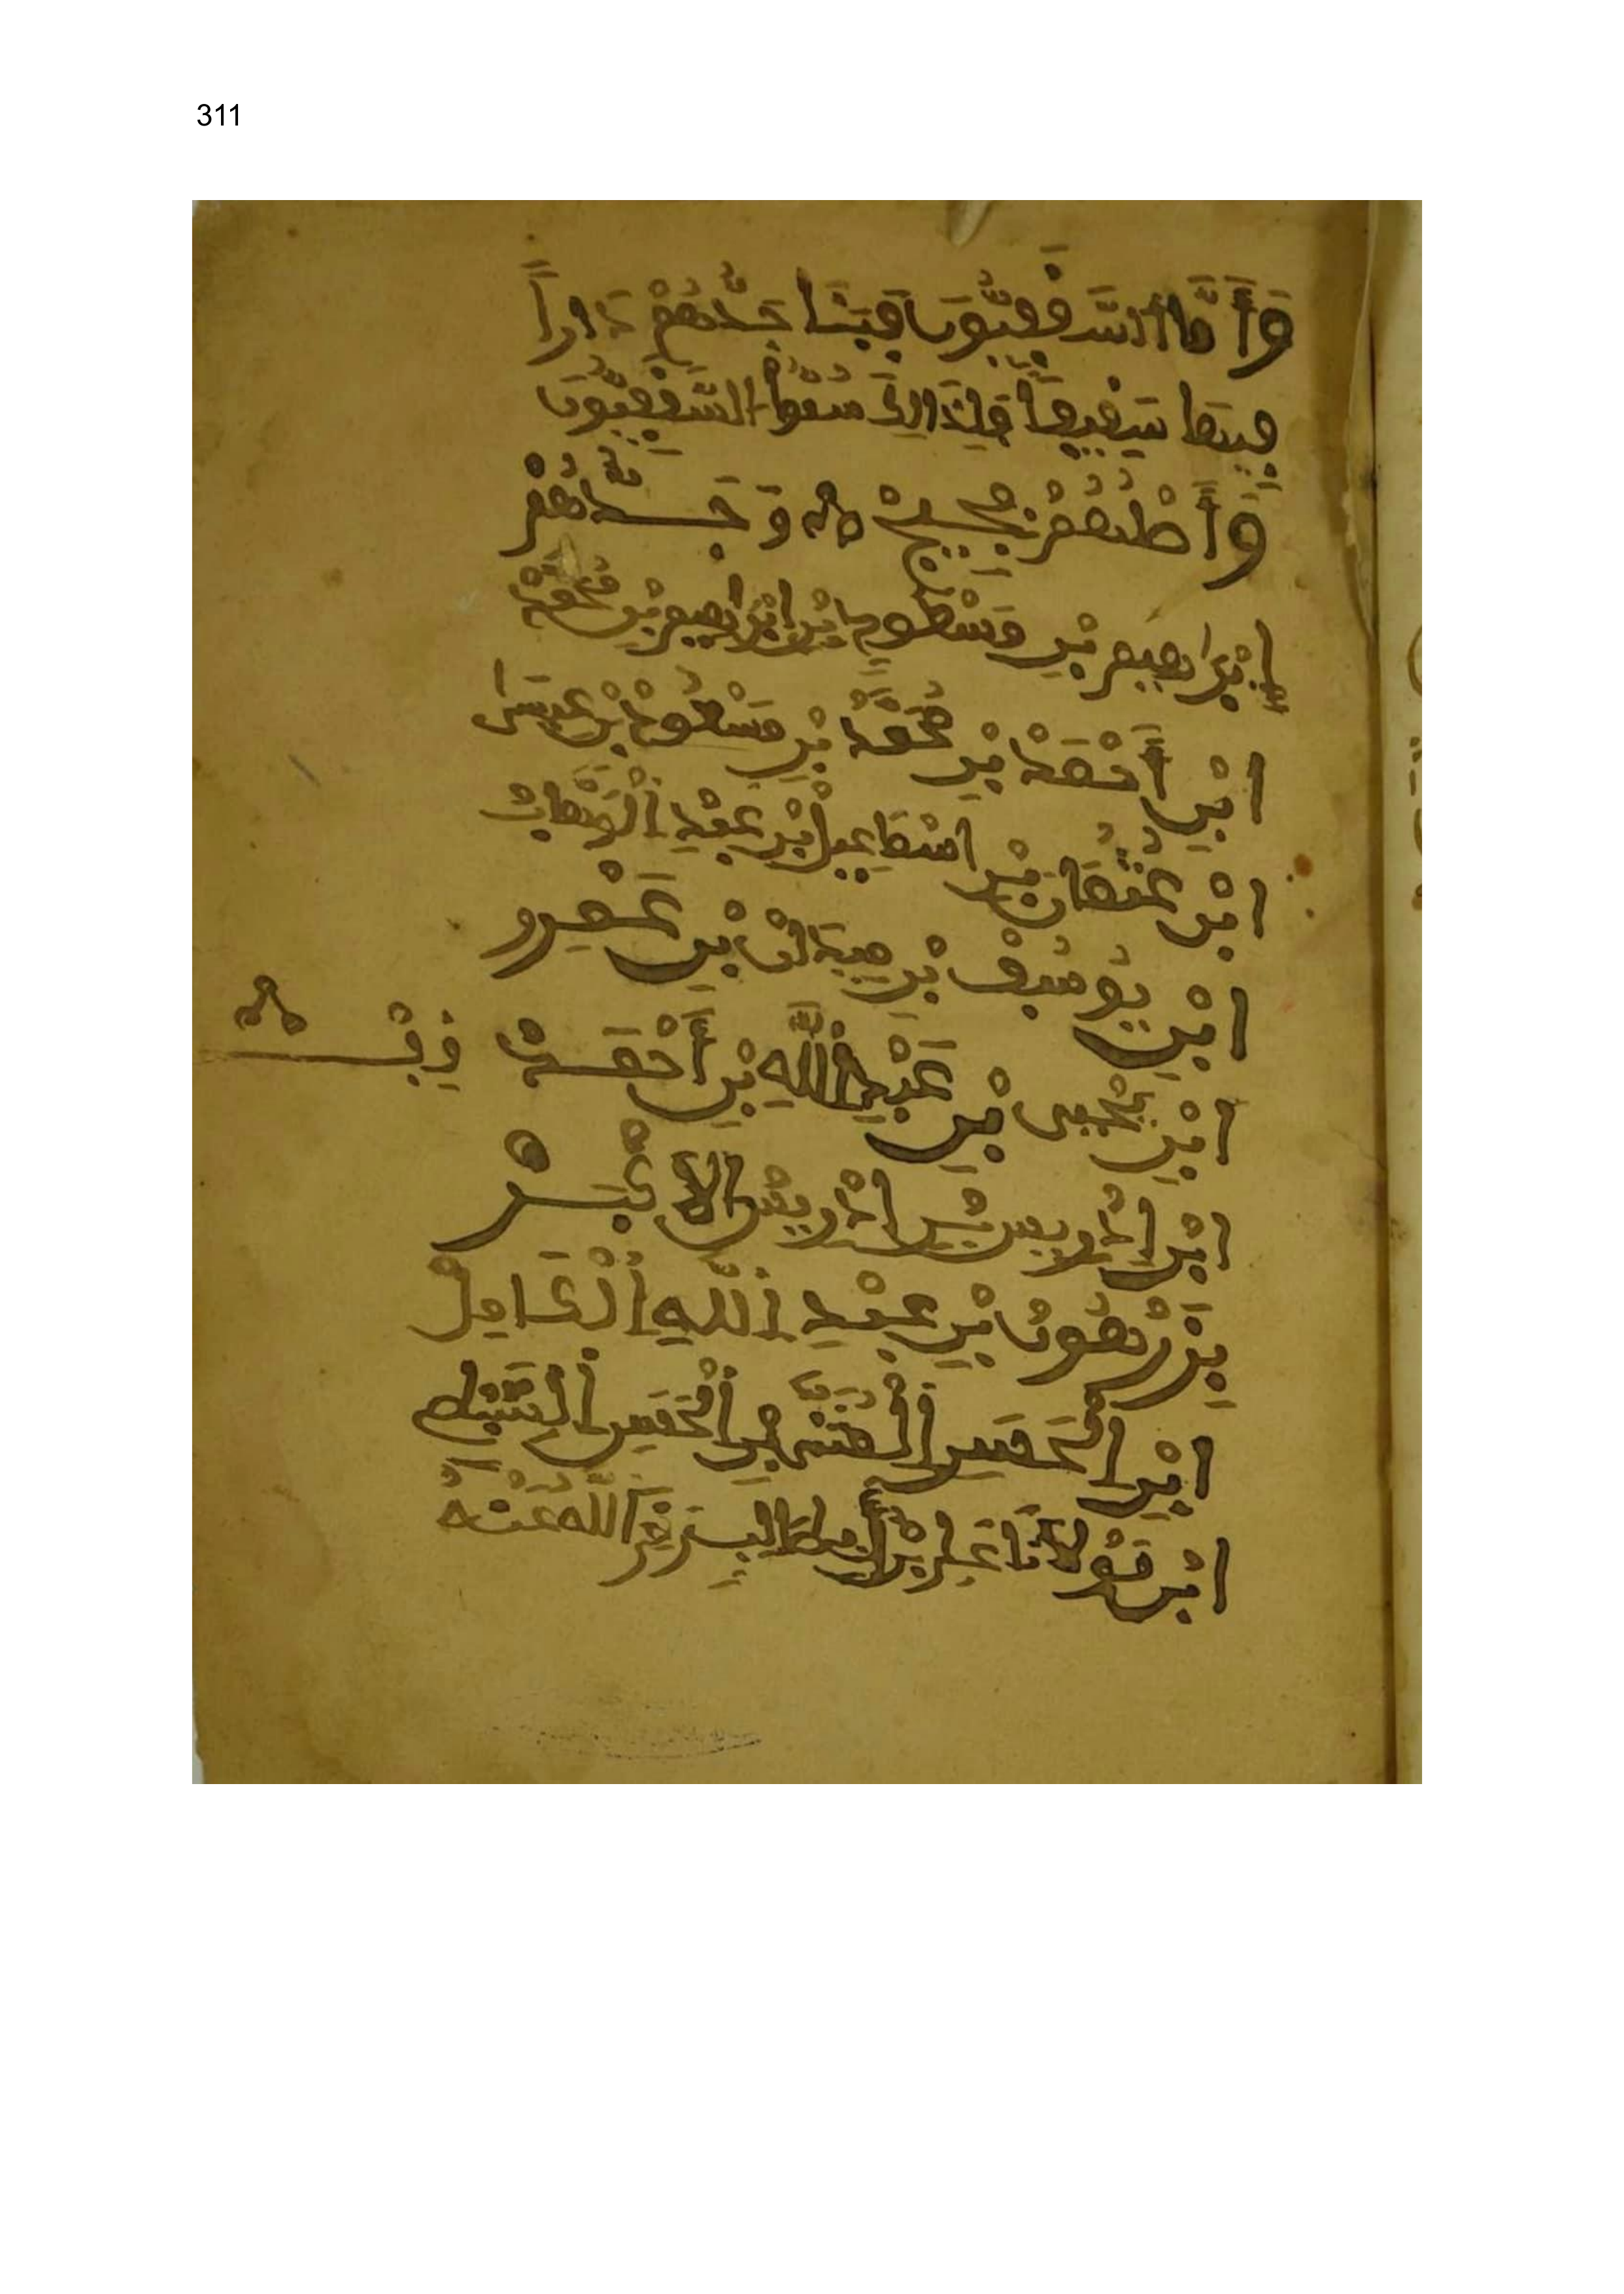 311
وَأَمَّا السَّقِفِيُّونَ فَبَنَا جَدُّهُمْ دَاراً
فِيهَا سَفِيفاً فَلِذَالِكَ سُمُّوا السَّقِفِيُّونَ
وَأَصْلُهُمْ وَجَدُّهُمْ
إِبْرَاهِيمَ بْنِ مَسْعُود ابْنِ إِبْرَاهِيمَ بْنِ مُحَمَّدْ
ابْنِ أَحْمَدْ بْنِ مُحَمَّدْ بْنِ مَسْعُودْ بْنِ عِيسَى
ابْنِ عُثْمَان بْنِ اسْمَاعِيل بْنِ عَبْدِ الْوَهَّابْ
ابْنِ يُوسُفْ بْنِ بْنِ عَمْرو
ابْنِ يَحْيَى بْنِ عَبْدِ اللَّهِ بْنِ أَحْمَدْ
ابْنِ ادْرِيس بْنِ ادْرِيسْ الاَكْبَرْ
بِزَرْهُونْ بْنِ عَبْدِ اللَّهِ الْكَامِلْ
ابْنِ الْحَسَنِ الْمُثَنَّى بْنِ الْحَسَنِ السَّبْطِ
ابْنِ مَوْلَانَا عَلِي بْنِ أَبِي طَالِبٍ رَضِيَ اللَّهُ عَنْهُ